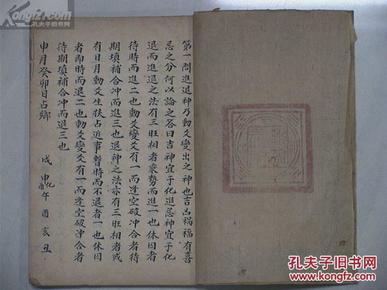 第一問進退神乃動爻變出之神也吉凶禍福有喜
忌之分何以論之答曰吉神宜于化進忌神宜于化
退而進退之法有三旺相者乘勢而進一也休囚者
待時而進二也動爻變爻有一而逢空破冲合者待
期填補合冲而進三也退神之法亦有三旺相者或
有日月動爻生扶占近事暫時而不退者一也休囚
者即時而退二也動爻變爻有一而逢空破冲合者
待期填補合冲而退三也
申月癸卯日占鄉 戌申 午酉亥丑
孔夫子旧书网